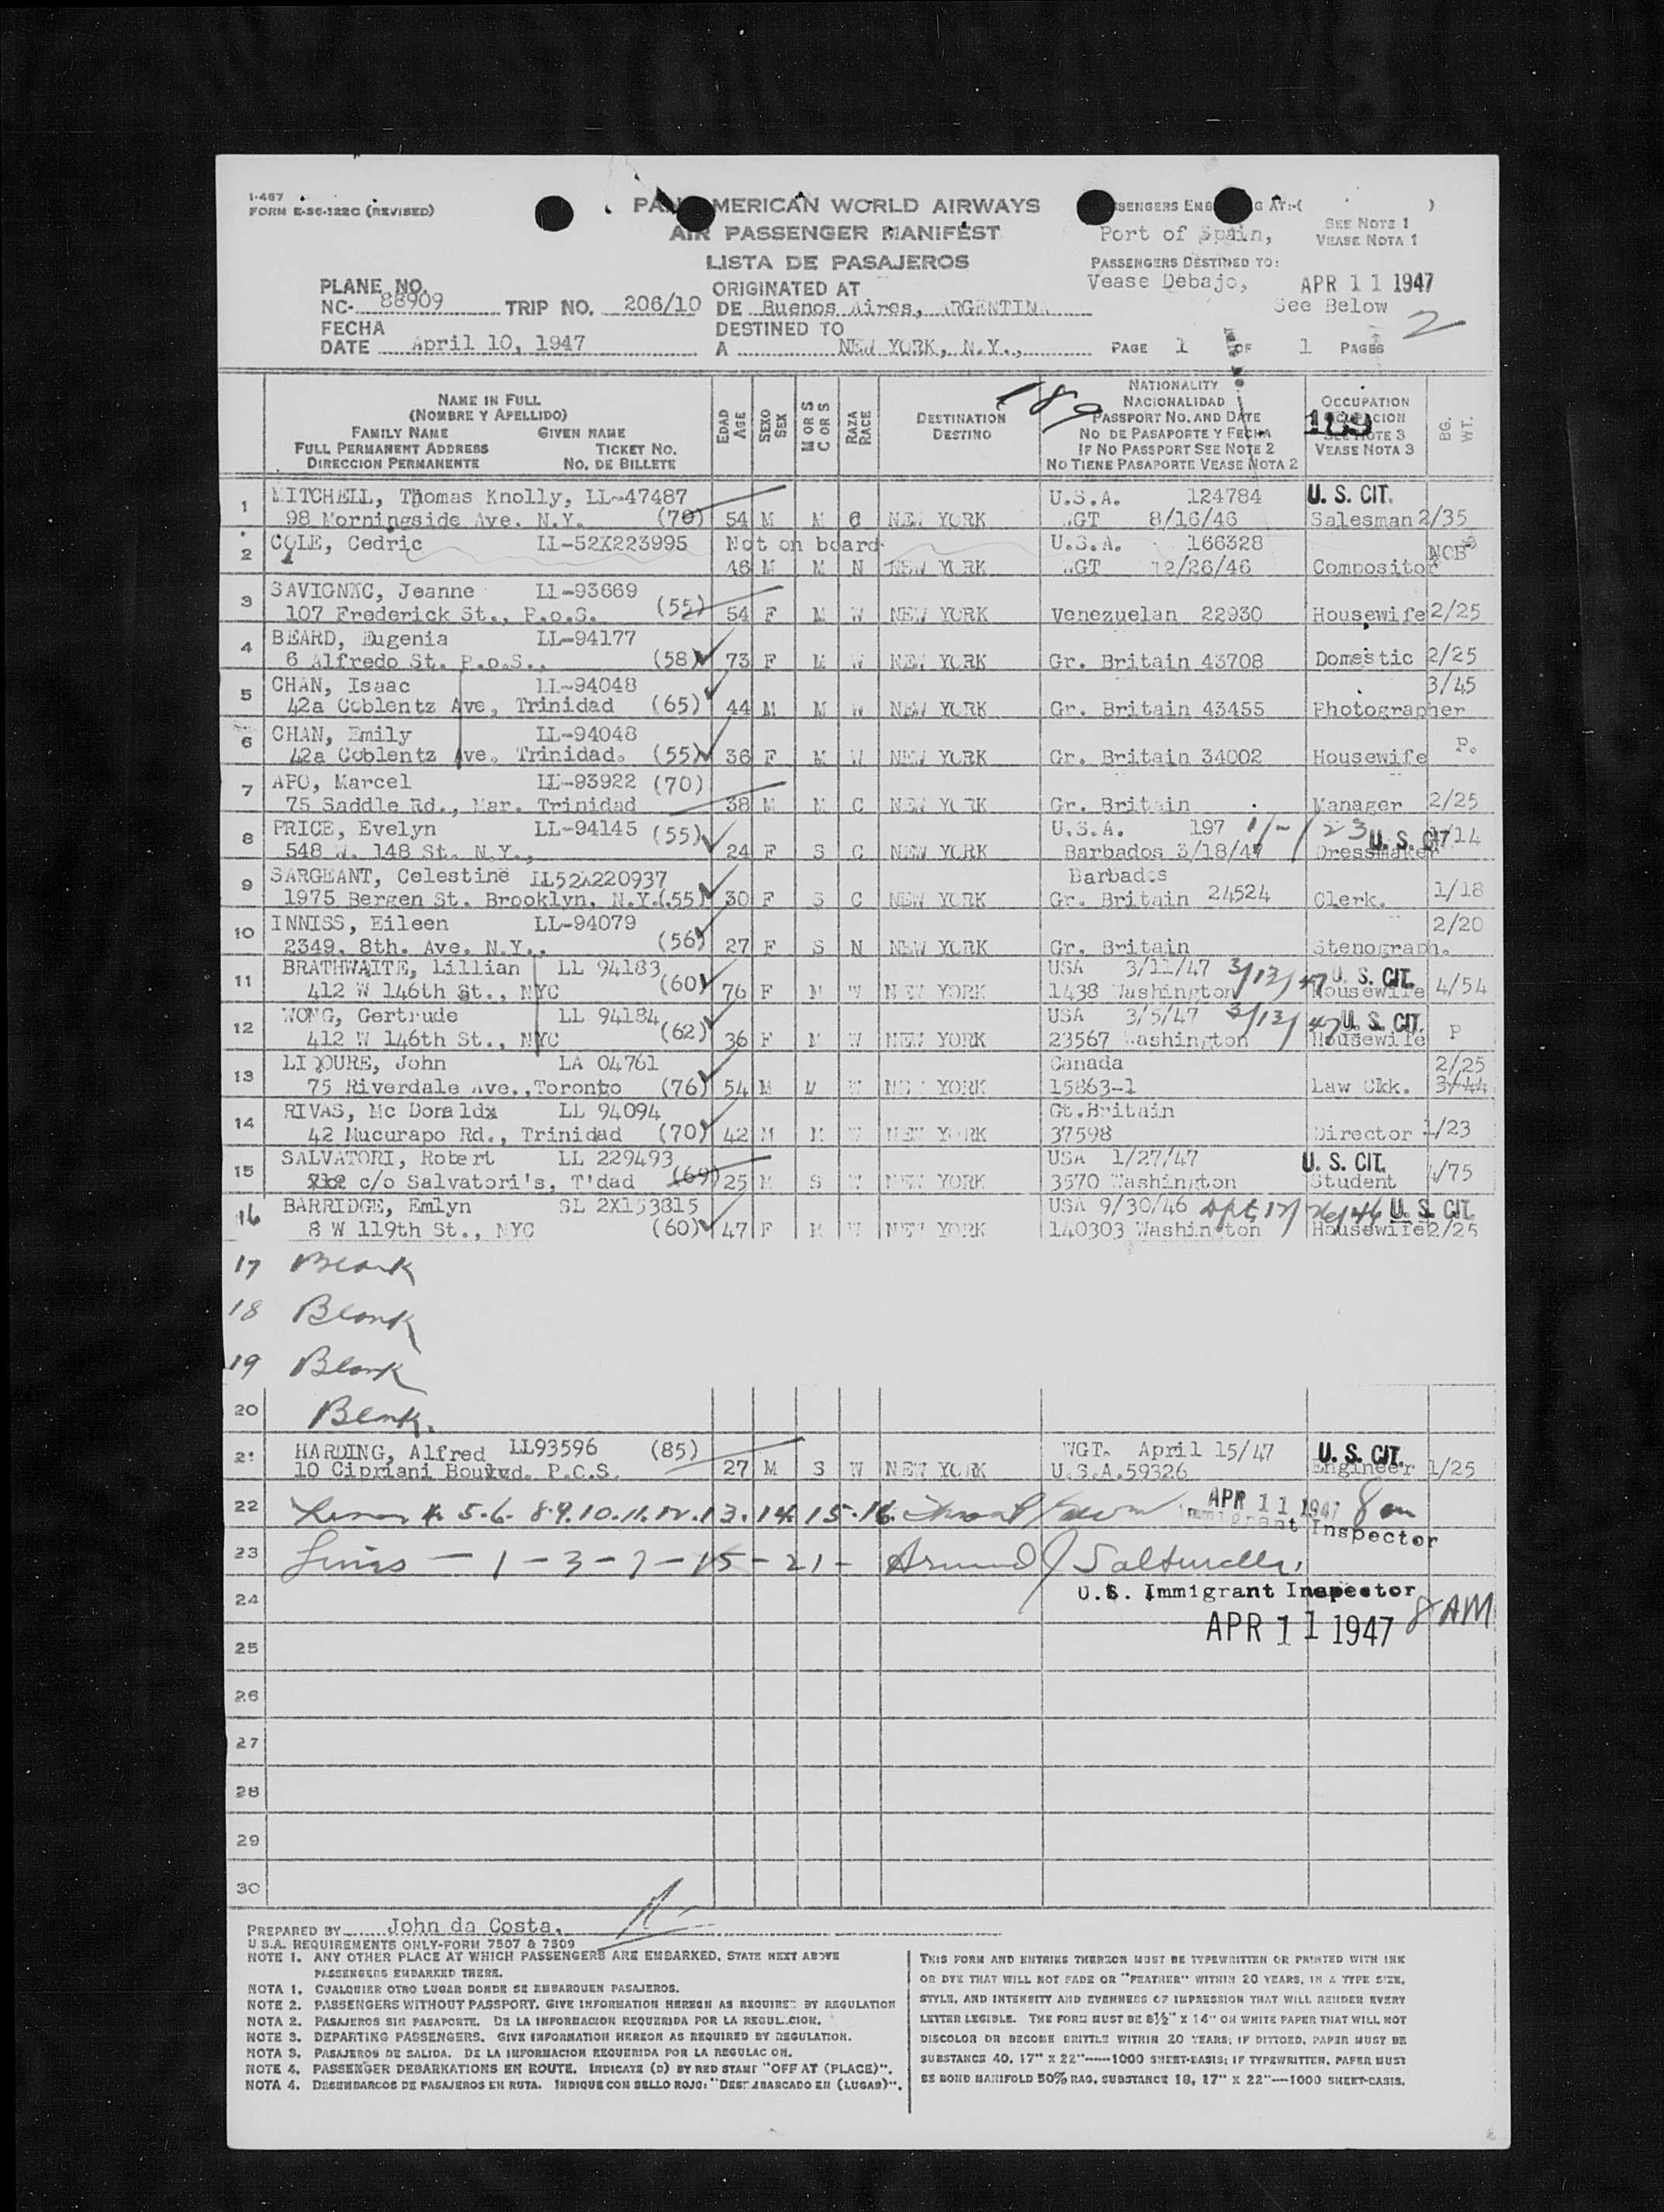 1-467
FORM E-SG-122C (REVISED)
PAN AMERICAN WORLD AIRWAYS
AIR PASSENGER MANIFEST
LISTA DE PASAJEROS
SEE NOTE 1
VEASE NOTA 1
Port of Spain,
PASSENGERS DESTINED TO:
Vease Debajo,
APR 11 1947
See Below
2
PLANE NO.
NC- 88909 TRIP NO. 206/10
ORIGINATED AT
DE Buenos Aires, ARGENTINA
FECHA
DATE April 10, 1947
DESTINED TO
A NEW YORK, N.Y.,
PAGE 1 OF 1 PAGES
NAME IN FULL
(NOMBRE Y APELLIDO)
FAMILY NAME GIVEN NAME
FULL PERMANENT ADDRESS TICKET NO.
DIRECCION PERMANENTE NO. DE BILLETE
EDAD AGE
SEXO SEX
M OR S C OR S
RAZA RACE
DESTINATION
DESTINO
189
NATIONALITY
NACIONALIDAD
PASSPORT NO. AND DATE
NO DE PASAPORTE Y FECHA
IF NO PASSPORT SEE NOTE 2
NO TIENE PASAPORTE VEASE NOTA 2
OCCUPATION
189
SEE NOTE 3
VEASE NOTA 3
BG. WT.
1 MITCHELL, Thomas Knolly, LL-47487 U.S.A. 124784 U. S. CIT.
98 Morningside Ave. N.Y. (70) 54 M M C NEW YORK WGT 8/16/46 Salesman 2/35
2 COLE, Cedric LL-52X223995 Not on board U.S.A. 166328 NOB
46 M M N NEW YORK WGT 12/26/46 Compositor
3 SAVIGNAC, Jeanne LL-93669
107 Frederick St., P.o.S. (55) 54 F M W NEW YORK Venezuelan 22930 Housewife 2/25
4 BEARD, Eugenia LL-94177
6 Alfredo St. P.o.S., (58) 73 F M W NEW YORK Gr. Britain 43708 Domestic 2/25
5 CHAN, Isaac LL-94048 3/45
42a Coblentz Ave, Trinidad (65) 44 M M W NEW YORK Gr. Britain 43455 Photographer
6 CHAN, Emily LL-94048 P.
42a Coblentz Ave. Trinidad. (55) 36 F M W NEW YORK Gr. Britain 34002 Housewife
7 APO, Marcel LL-93922 (70)
75 Saddle Rd., Mar. Trinidad 38 M M C NEW YORK Gr. Britain Manager 2/25
8 PRICE, Evelyn LL-94145 (55) U.S.A. 197 U. S. CIT
548 W. 148 St. N.Y., 24 F S C NEW YORK Barbados 3/18/47 Dressmaker
9 SARGEANT, Celestine LL52X220937 Barbados
1975 Bergen St. Brooklyn, N.Y. (55) 30 F S C NEW YORK Gr. Britain 24524 Clerk. 1/18
10 INNISS, Eileen LL-94079 2/20
2349. 8th. Ave. N.Y., (56) 27 F S N NEW YORK Gr. Britain Stenograph.
11 BRATHWAITE, Lillian LL 94183 USA 3/11/47 3/12/47 U. S. CIT.
412 W 146th St., NYC (60) 76 F M W NEW YORK 1438 Washington Housewife 4/54
12 WONG, Gertrude LL 94184 USA 3/5/47 3/12/47 U. S. CIT.
412 W 146th St., NYC (62) 36 F M W NEW YORK 23567 Washington Housewife P
13 John LA 04761 Canada 2/25
75 Riverdale Ave., Toronto (76) 54 M M W NEW YORK 15863-1 Law Ckk. 3/44
14 RIVAS, Mc Donaldx LL 94094 Gt.Britain
42 Mucurapo Rd., Trinidad (70) 42 M M W NEW YORK 37598 Director 1/23
15 SALVATORI, Robert LL 229493 USA 1/27/47 U. S. CIT.
c/o Salvatori's, T'dad (69) 25 M S W NEW YORK 3570 Washington Student 1/75
16 BARRIDGE, Emlyn SL 2X153815 USA 9/30/46 U. S. CIT.
8 W 119th St., NYC (60) 47 F M W NEW YORK 140303 Washington Housewife 2/25
17 Blank
18 Blank
19 Blank
20 Blank.
21 HARDING, Alfred LL93596 (85) WGT. April 15/47 U. S. CIT.
10 Cipriani Boulvd. P.O.S. 27 M S W NEW YORK U.S.A. 59326 Engineer 1/25
22 4. 5. 6. 8. 9. 10. 11. 12. 13. 14. 15. 16. APR 11 1947 8 am
Immigrant Inspector
23 Lines - 1 - 3 - 7 - 15 - 21 -
U.S. Immigrant Inspector
24 APR 11 1947 8 AM
25
26
27
28
29
30
PREPARED BY John da Costa.
U.S.A. REQUIREMENTS ONLY-FORM 7507 & 7509
NOTE 1. ANY OTHER PLACE AT WHICH PASSENGERS ARE EMBARKED, STATE NEXT ABOVE
PASSENGERS EMBARKED THERE.
NOTA 1. CUALQUIER OTRO LUGAR DONDE SE EMBARQUEN PASAJEROS.
NOTE 2. PASSENGERS WITHOUT PASSPORT. GIVE INFORMATION HEREON AS REQUIRED BY REGULATION
NOTA 2. PASAJEROS SIN PASAPORTE. DE LA INFORMACION REQUERIDA POR LA REGULACION.
NOTE 3. DEPARTING PASSENGERS. GIVE INFORMATION HEREON AS REQUIRED BY REGULATION.
NOTA 3. PASAJEROS DE SALIDA. DE LA INFORMACION REQUERIDA POR LA REGULACION.
NOTE 4. PASSENGER DEBARKATIONS EN ROUTE. INDICATE (D) BY RED STAMP "OFF AT (PLACE)".
NOTA 4. DESEMBARCOS DE PASAJEROS EN RUTA. INDIQUE CON SELLO ROJO: "DESEMBARCADO EN (LUGAR)".
THIS FORM AND ENTRIES THEREON MUST BE TYPEWRITTEN OR PRINTED WITH INK
OR DYE THAT WILL NOT FADE OR "FEATHER" WITHIN 20 YEARS, IN A TYPE SIZE,
STYLE, AND INTENSITY AND EVENNESS OF IMPRESSION THAT WILL RENDER EVERY
LETTER LEGIBLE. THE FORM MUST BE 8½" X 14" ON WHITE PAPER THAT WILL NOT
DISCOLOR OR BECOME BRITTLE WITHIN 20 YEARS; IF DITTOED, PAPER MUST BE
SUBSTANCE 40, 17" X 22"-----1000 SHEET-BASIS; IF TYPEWRITTEN, PAPER MUST
BE BOND MANIFOLD 50% RAG, SUBSTANCE 18, 17" X 22"---1000 SHEET-BASIS.